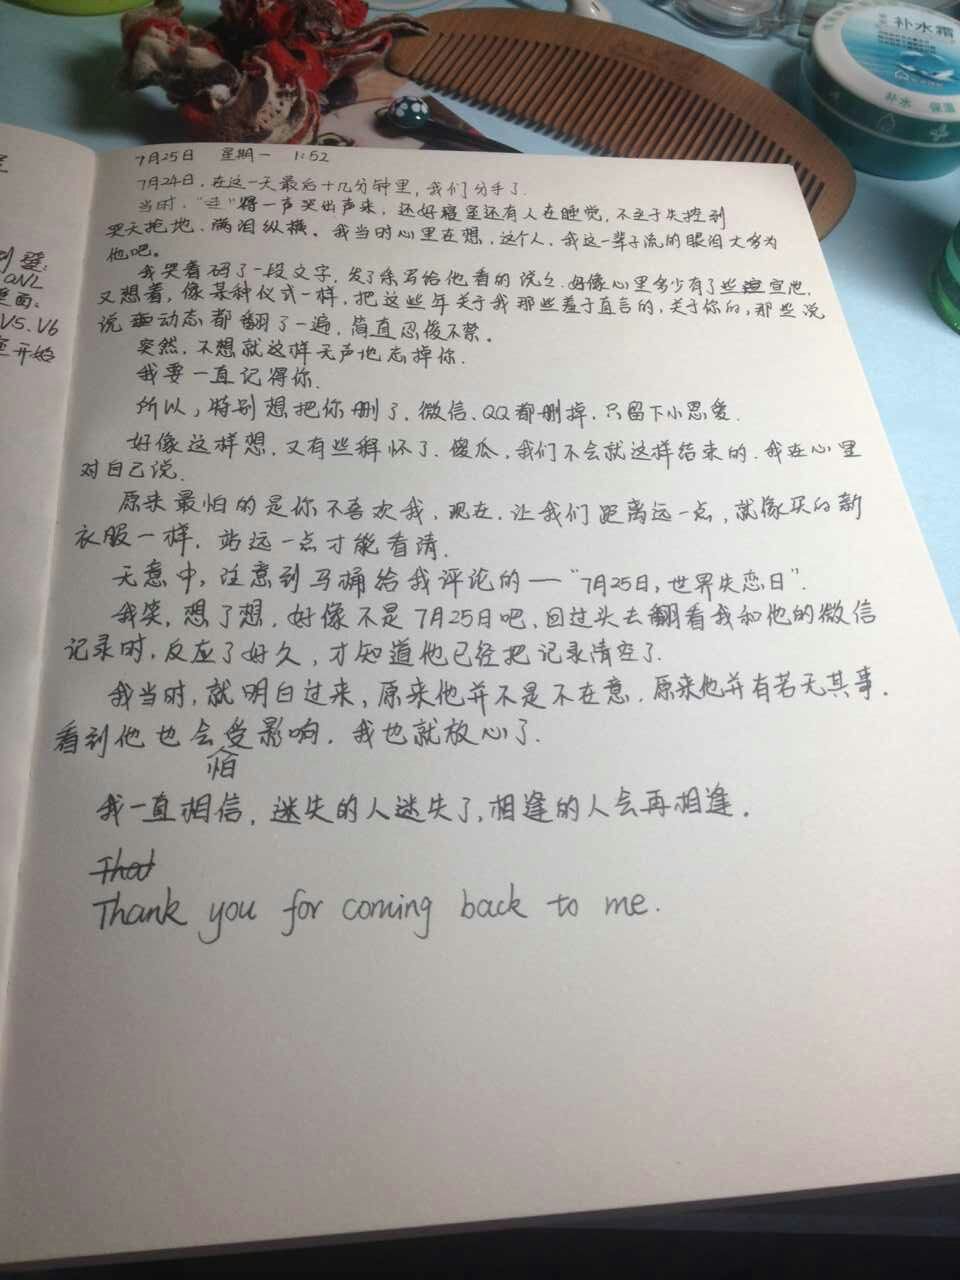 补水霜
补水 保湿
7月25日 星期一 1:52
7月24日,在这一天最后十几分钟里,我们分手了.
当时,"哇"将一声哭出声来,还好寝室还有人在睡觉,不至于失控到
哭天抢地、满泪纵横。我当时心里在想,这个人,我这一辈子流的眼泪大多为
他吧。
我哭着码了一段文字,发了条写给他看的说说.好像心里多少有了些宣泄.
又想着,像某种仪式一样,把这些年关于我那些羞于直言的,关于你的,那些说
说动态都翻了一遍,简直忍俊不禁。
突然,不想就这样无声地忘掉你.
我要一直记得你.
所以,特别想把你删了.微信、QQ都删掉.只留下小恩爱.
好像这样想,又有些释怀了.傻瓜,我们不会就这样结束的.我在心里
对自己说.
原来最怕的是你不喜欢我,现在,让我们距离远一点,就像买的新
衣服一样,站远一点才能看清.
无意中,注意到马桶给我评论的—"7月25日,世界失恋日".
我笑,想了想,好像不是7月25日吧,回过头去翻看我和他的微信
记录时,反应了好久,才知道他已经把记录清空了.
我当时,就明白过来,原来他并不是不在意.原来他并有若无其事.
看到他也会怕受影响,我也就放心了.
我一直相信,迷失的人迷失了,相逢的人会再相逢。
That
Thank you for coming back to me.
QNL
V5、V6
开始